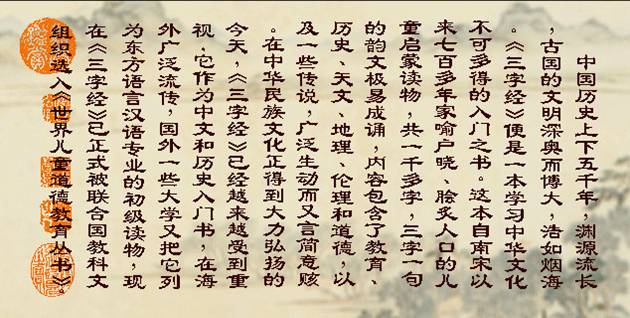 中国历史上下五千年，渊源流长
，古国的文明深奥而博大，浩如烟海
。《三字经》便是一本学习中华文化
不可多得的入门之书。这本自南宋以
来七百多年家喻户晓、脍炙人口的儿
童启蒙读物，共一千多字，三字一句
的韵文极易成诵，内容包含了教育、
历史、天文、地理、伦理和道德，以
及一些传说，广泛生动而又言简意赅
。在中华民族文化正得到大力弘扬的
今天，《三字经》已经越来越受到重
视，它作为中文和历史入门书，在海
外广泛流传，国外一些大学又把它列
为东方语言汉语专业的初级读物，现
在《三字经》已正式被联合国教科文
组织选入《世界儿童道德教育丛书》。